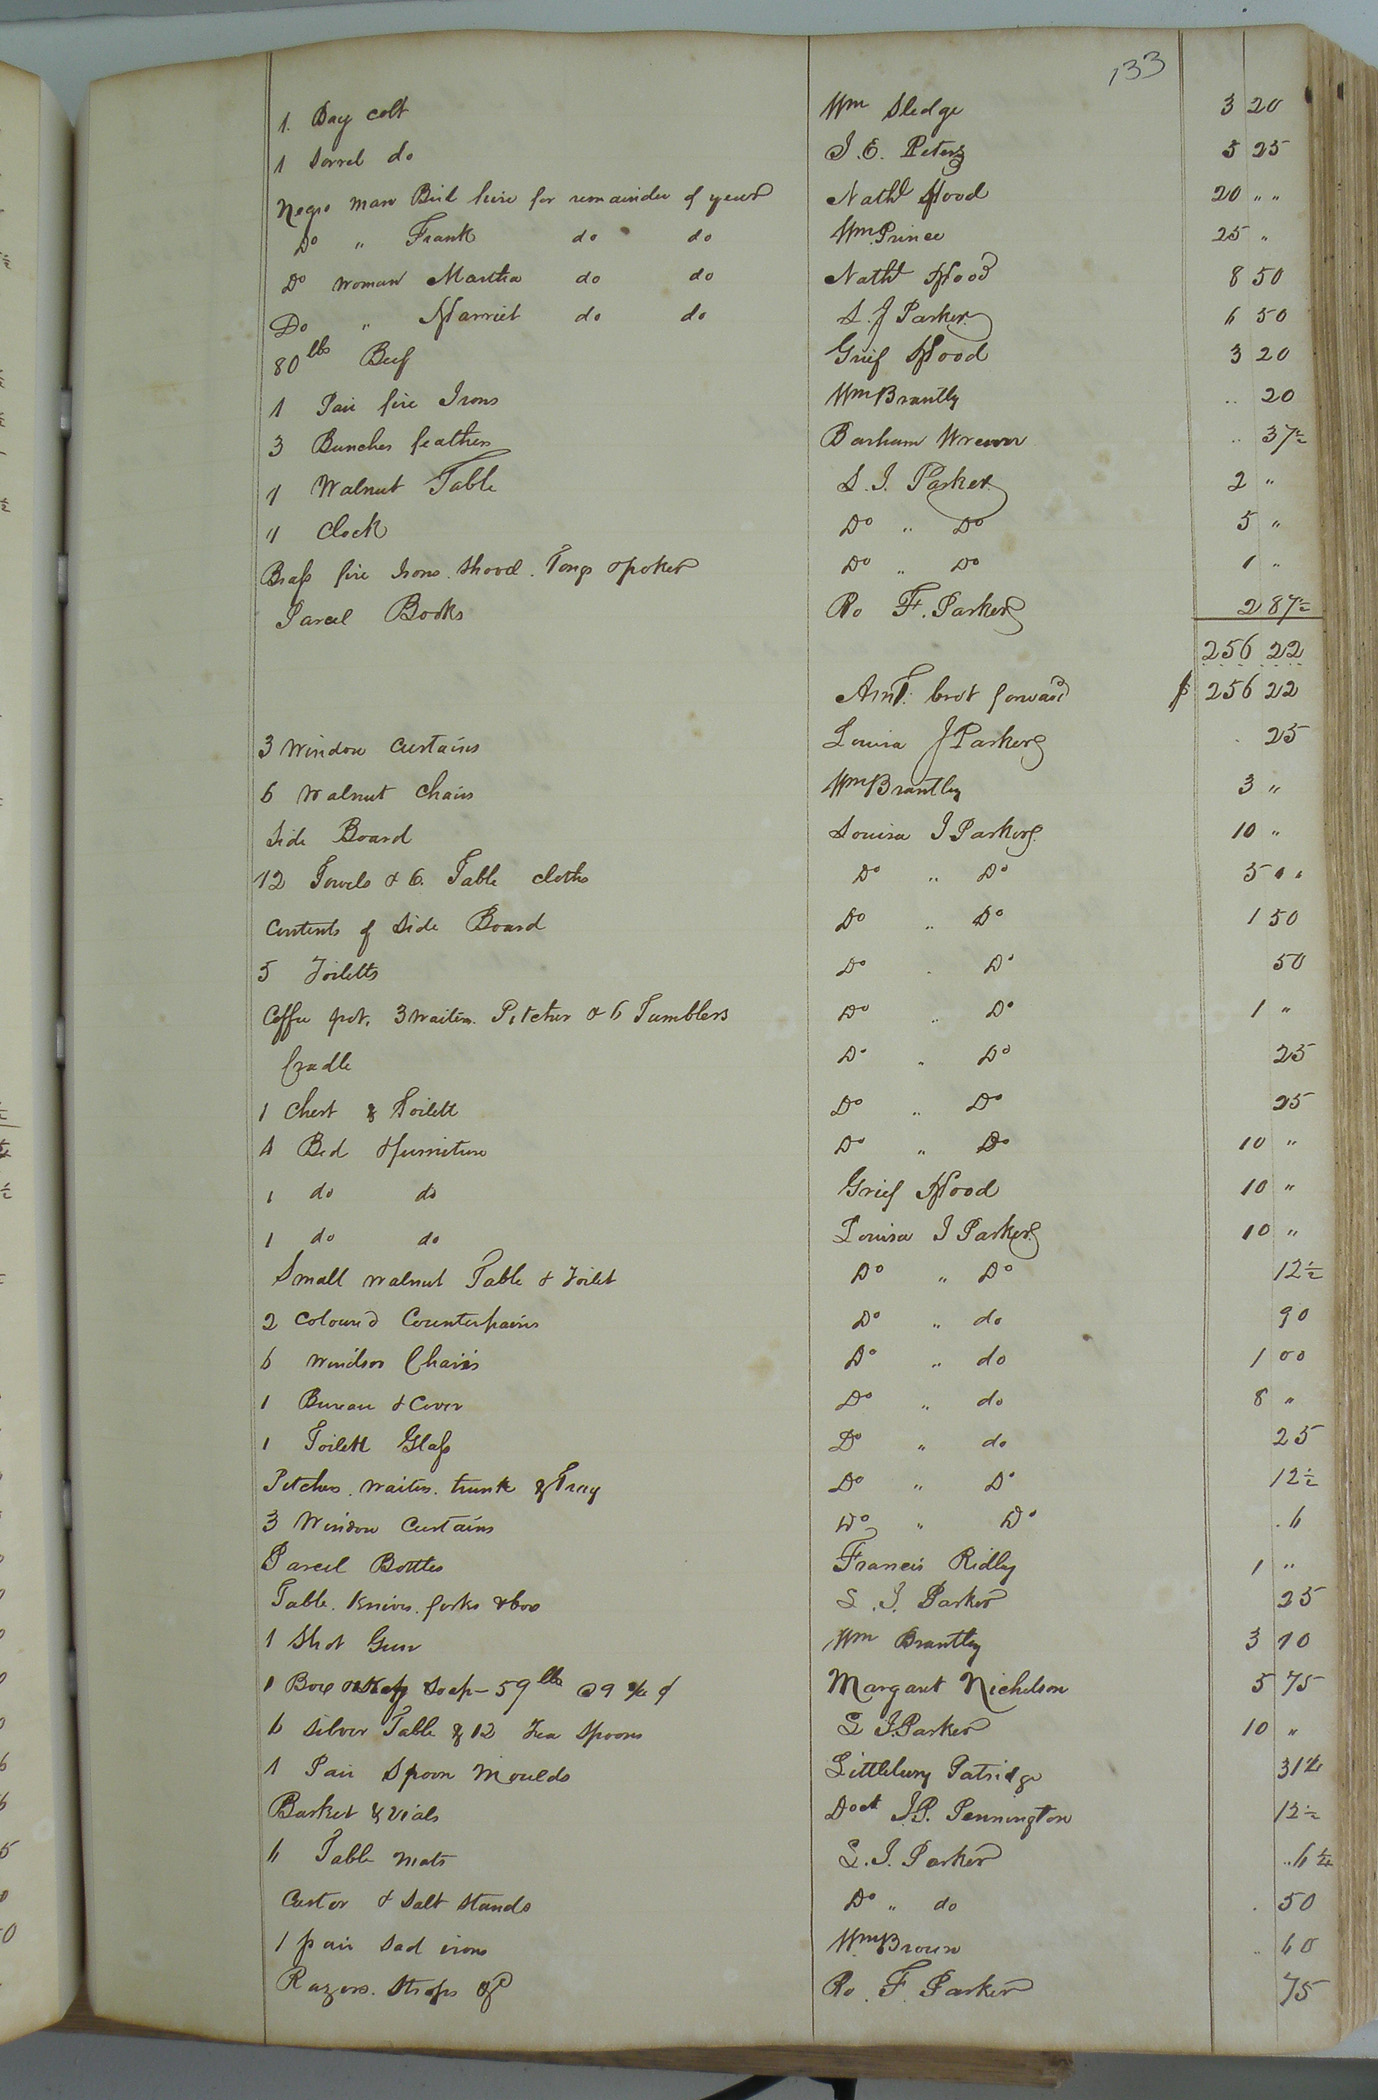 133
1. Bay colt Wm Sledge 3 20
1 Sorrel do J. E. Peters 5 25
Negro man Bird hire for remainder of year Nathl Hood 20 " "
Do " Frank do do Wm Prince 25 "
Do woman Martha do do Nathl Hood 8 50
Do " Harriet do do L. J Parker 6 50
80 lbs Beef Grief Hood 3 20
1 Pair fire Irons Wm Brantly .. 20
3 Bunches feathers Barham .. 37½
1 Walnut Table L. J. Parker 2 "
1 Clock Do " Do 5 "
Brass fire Irons. Shovel. Tongs & poker Do " Do 1 "
Parcel Books Ro F. Parker 2 87½
256 22
Amt. brot forward $ 256 22
3 Window Curtains Louisa J Parker . 25
6 Walnut Chairs Wm Brantley 3 "
Side Board Louisa J Parker 10 "
12 Towels & 6. Table cloths Do " Do 5 " "
Contents of Side Board Do " Do 1 50
5 Toiletts Do . Do 50
Coffee pot, 3 waiters. Pitcher & 6 Tumblers Do " Do 1 "
Cradle Do " Do 25
1 Chest & Toilett Do " Do 25
1 Bed & furniture Do " Do 10 "
1 do do Grief Hood 10 "
1 do do Louisa J Parker 10 "
Small walnut Table & Toilet Do " Do 12½
2 Colourd Counterpains Do " do 90
6 Windsor Chairs Do " do 1 00
1 Bureau & Cover Do " do 8 "
1 Toilett Glass Do " do 25
Pitcher. waiter. trunk & Tray Do " Do 12½
3 Window Curtains Do " Do . 6
Parcel Bottles Francis Ridley 1 "
Table. Knives. forks & box L. J. Parker 25
1 Shot Gun Wm Brantley 3 10
1 Box Soap – 59 lbs @ 9 ¾ ¢ Margaret Nicholson 5 75
6 Silver Table & 12 Tea Spoons L J. Parker 10 "
1 Pair Spoon Moulds Littlebury Patridge 31¼
Basket & vials Doct J. P. Pennington 12½
6 Table mats L. J. Parker .. 6¼
Castor & Salt Stands Do " do . 50
1 pair Sad irons Wm Brown .. 60
Razors. Strops &c Ro. F. Parker 75